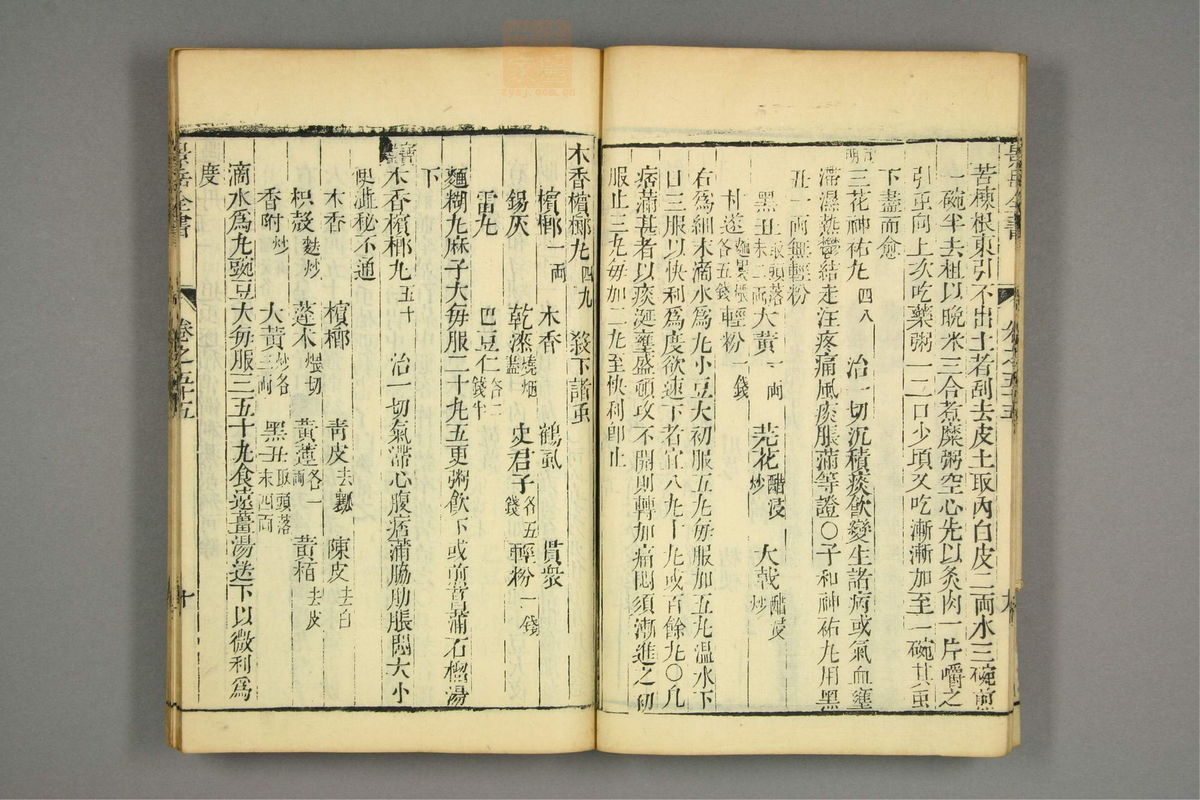 苦楝根東引不出土者刮去皮土取內白皮二両水三碗煎
一碗半去柤以晚米三合煮糜粥空心先以炙肉一片嚼之
引䖝向上次吃藥粥一二口少頃又吃漸漸加至一碗其䖝
下盡而愈
三花神祐丸 四八 治一切沉積痰飲變生諸病或氣血壅
滯濕熱鬱結走注疼痛風痰脹滿等證〇子和神祐丸用黑
丑一両無輕粉
黑丑 取頭落末二両 大黃 一両 芫花 醋浸炒 大戟 醋浸炒
甘遂 麵裹煨各五錢 輕粉 一錢
右爲細末滴水爲丸小豆大初服五丸每服加五丸溫水下
日三服以快利爲度欲速下者宜八九十丸或百餘丸〇凡
痞滿甚者以痰涎壅盛頓攻不開則轉加痛悶須漸進之初
服止三丸每加二丸至快利即止
木香檳榔丸 四九 殺下諸䖝
檳榔 一両 木香 鶴虱 貫衆
錫灰 乾漆 燒烟盡 史君子 各五錢 輕粉 一錢
雷丸 巴豆仁 各二錢半
麵糊丸麻子大每服二十丸五更粥飲下或前菖蒲石榴湯
下
木香檳榔丸 五十 治一切氣滯心腹痞滿脇肋脹悶大小
便澁秘不通
木香 檳榔 青皮 去瓤 陳皮 去白
枳殼 麩炒 蓬朮 煨切 黃連 各一両 黃栢 去皮
香附 炒 大黃 炒各三両 黑丑 取頭落末四両
滴水爲丸豌豆大每服三五十丸食遠薑湯送下以微利爲
度
景岳全書
卷之五十五
十